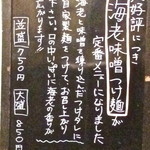 好評につき
海老味噌つけ麺が
定番メニューになりました
海老と味噌を練り込んだつけダレに
自家製麺をつけて、お召し上り
下さい。口の中いっぱいに海老の香が
広がります!
並盛 750円
大盛 850円